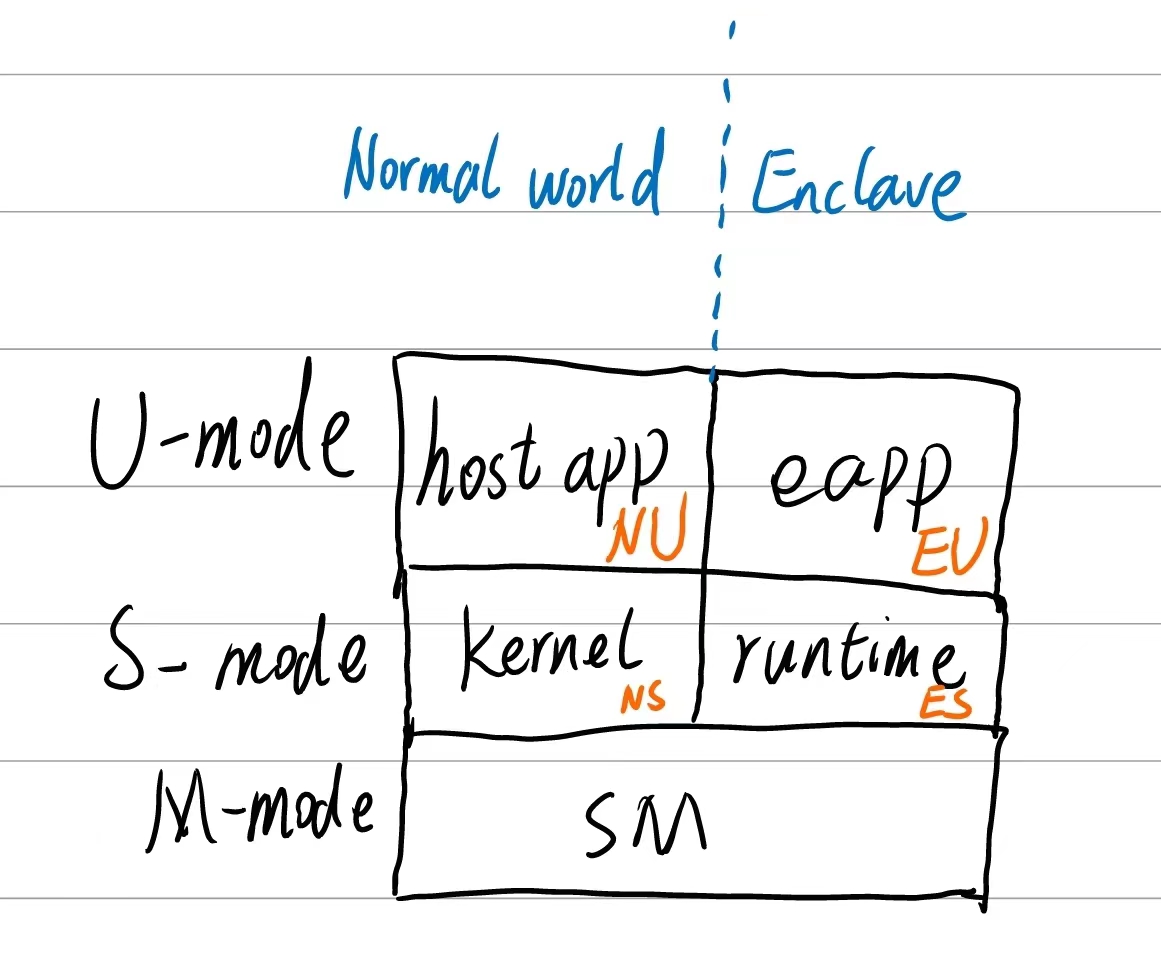 Normal world Enclave
U-mode host app NU eapp EU
S-mode kernel NS runtime ES
M-mode SM